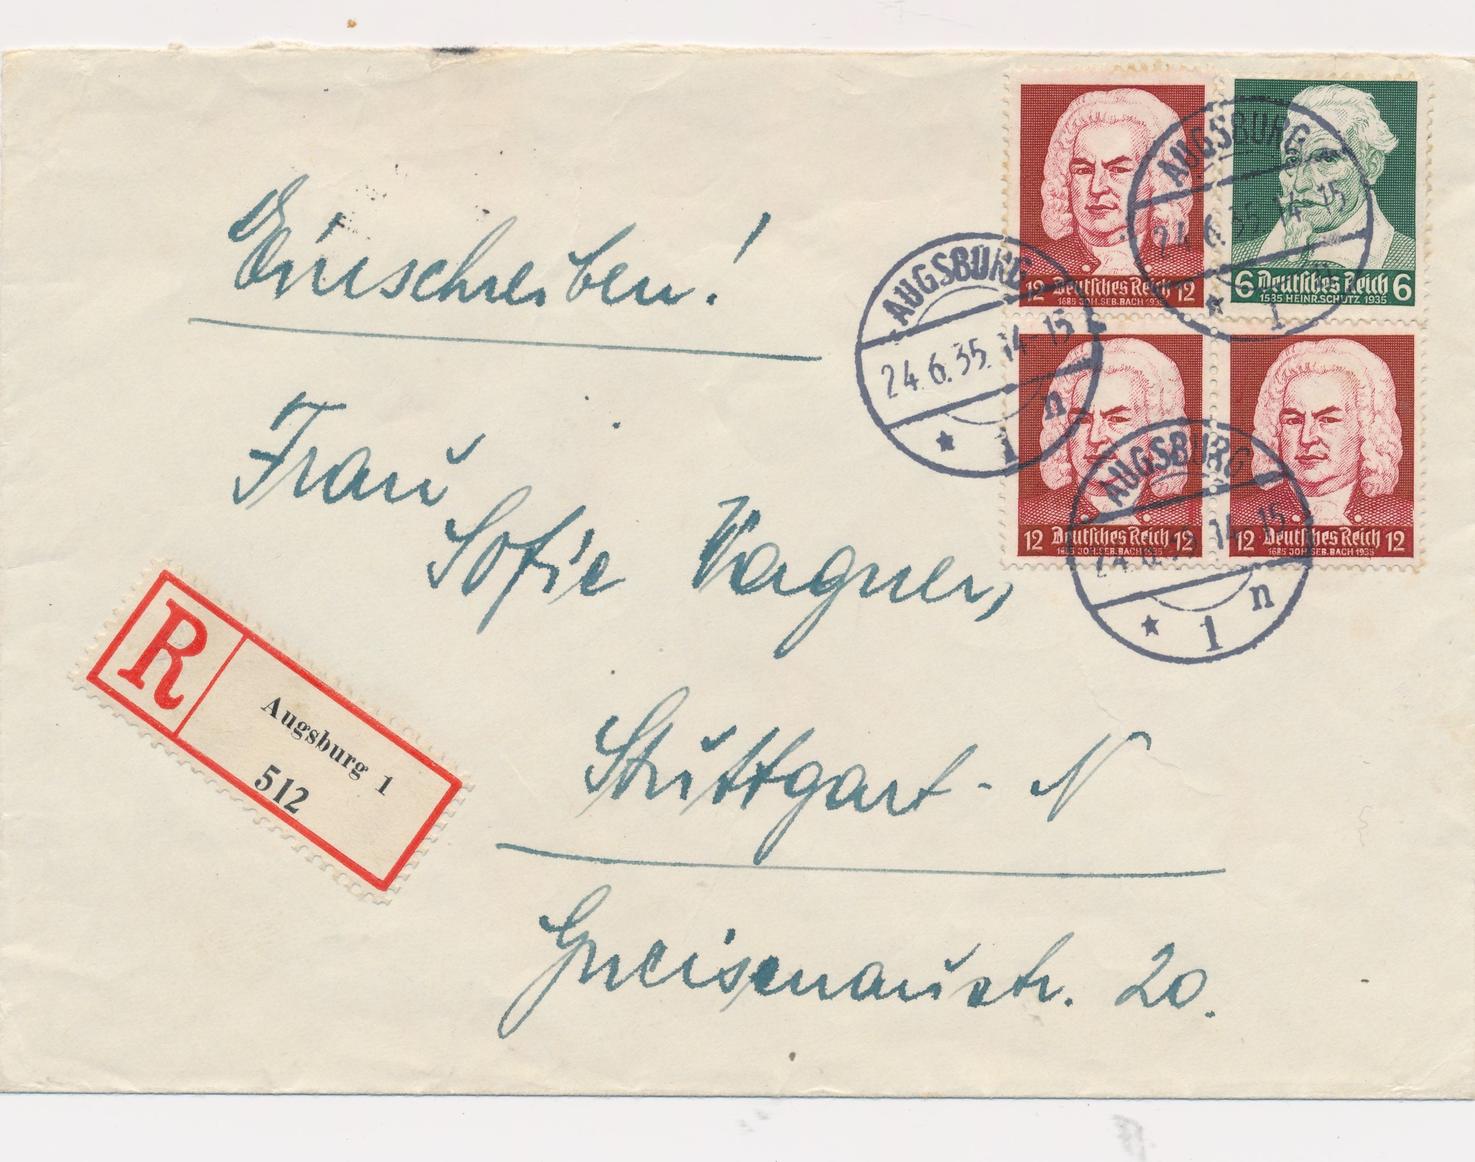 Einschreiben!
Frau
Sofie Wagner,
Stuttgart - N
Gneisenaustr. 20.
R
Augsburg 1
512
12 Deutsches Reich 12
1685 JOH. SEB. BACH 1935
6 Deutsches Reich 6
1585 HEINR. SCHÜTZ 1935
12 Deutsches Reich 12
1685 JOH. SEB. BACH 1935
12 Deutsches Reich 12
1685 JOH. SEB. BACH 1935
AUGSBURG
24.6.35. 14-15
* 1 n
AUGSBURG
24.6.35. 14-15
* 1 n
AUGSBURG
24.6.35. 14-15
* 1 n